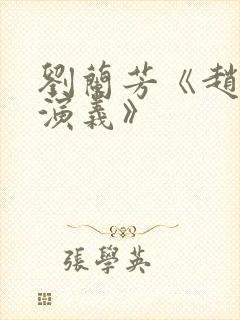 劉蘭芳《趙
演義》
張學英